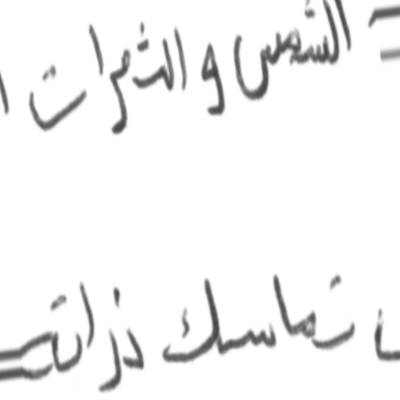 الشمس و الثمرات
تماسك ذراته